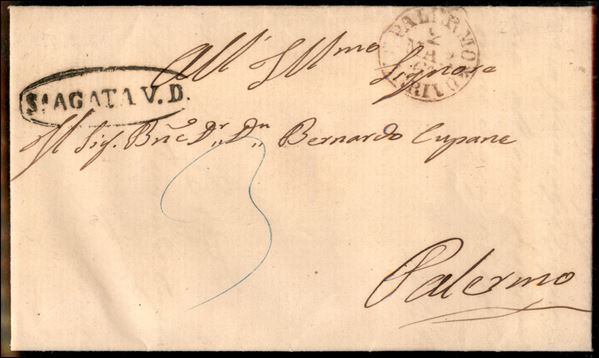 PALERMO
2
ARRIVO
All' Ill.mo Signore
S. AGATA V.D.
Al Sig. Bne Dr. Dn. Bernardo Cupane
3
Palermo